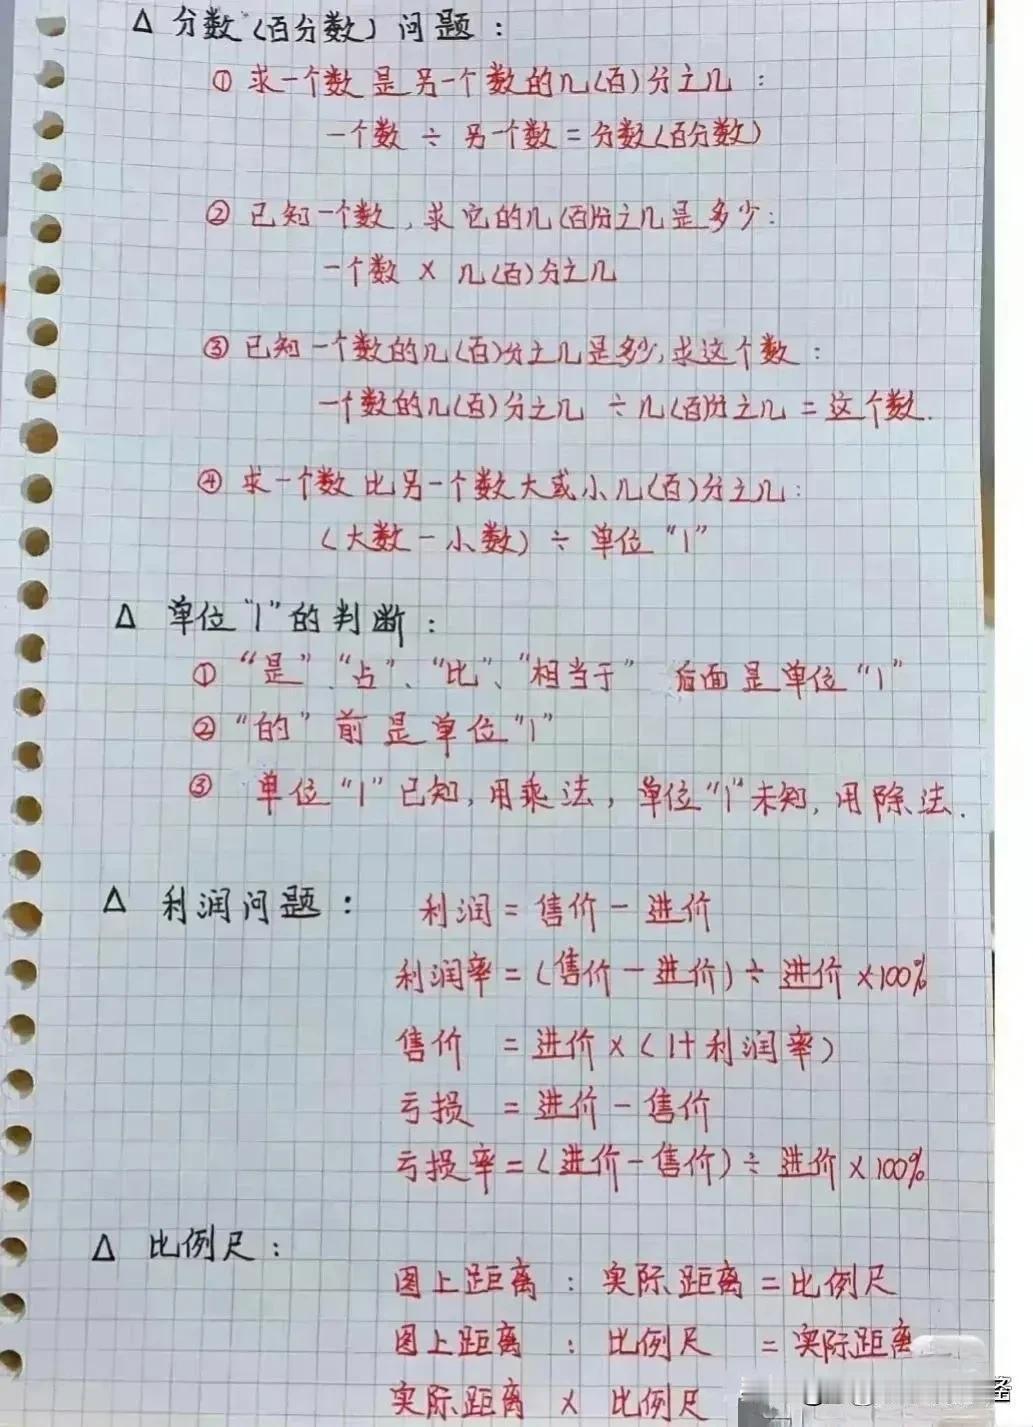 △ 分数(百分数)问题：
① 求一个数是另一个数的几(百)分之几：
一个数 ÷ 另一个数 = 分数(百分数)
② 已知一个数，求它的几(百)分之几是多少：
一个数 × 几(百)分之几
③ 已知一个数的几(百)分之几是多少，求这个数：
一个数的几(百)分之几 ÷ 几(百)分之几 = 这个数.
④ 求一个数比另一个数大或小几(百)分之几：
(大数 - 小数) ÷ 单位“1”
△ 单位“1”的判断：
① “是”、“占”、“比”、“相当于” 后面是单位“1”
② “的”前是单位“1”
③ 单位“1”已知，用乘法，单位“1”未知，用除法.
△ 利润问题： 利润 = 售价 - 进价
利润率 = (售价 - 进价) ÷ 进价 × 100%
售价 = 进价 × (1+利润率)
亏损 = 进价 - 售价
亏损率 = (进价 - 售价) ÷ 进价 × 100%
△ 比例尺：
图上距离 : 实际距离 = 比例尺
图上距离 : 比例尺 = 实际距离
实际距离 × 比例尺